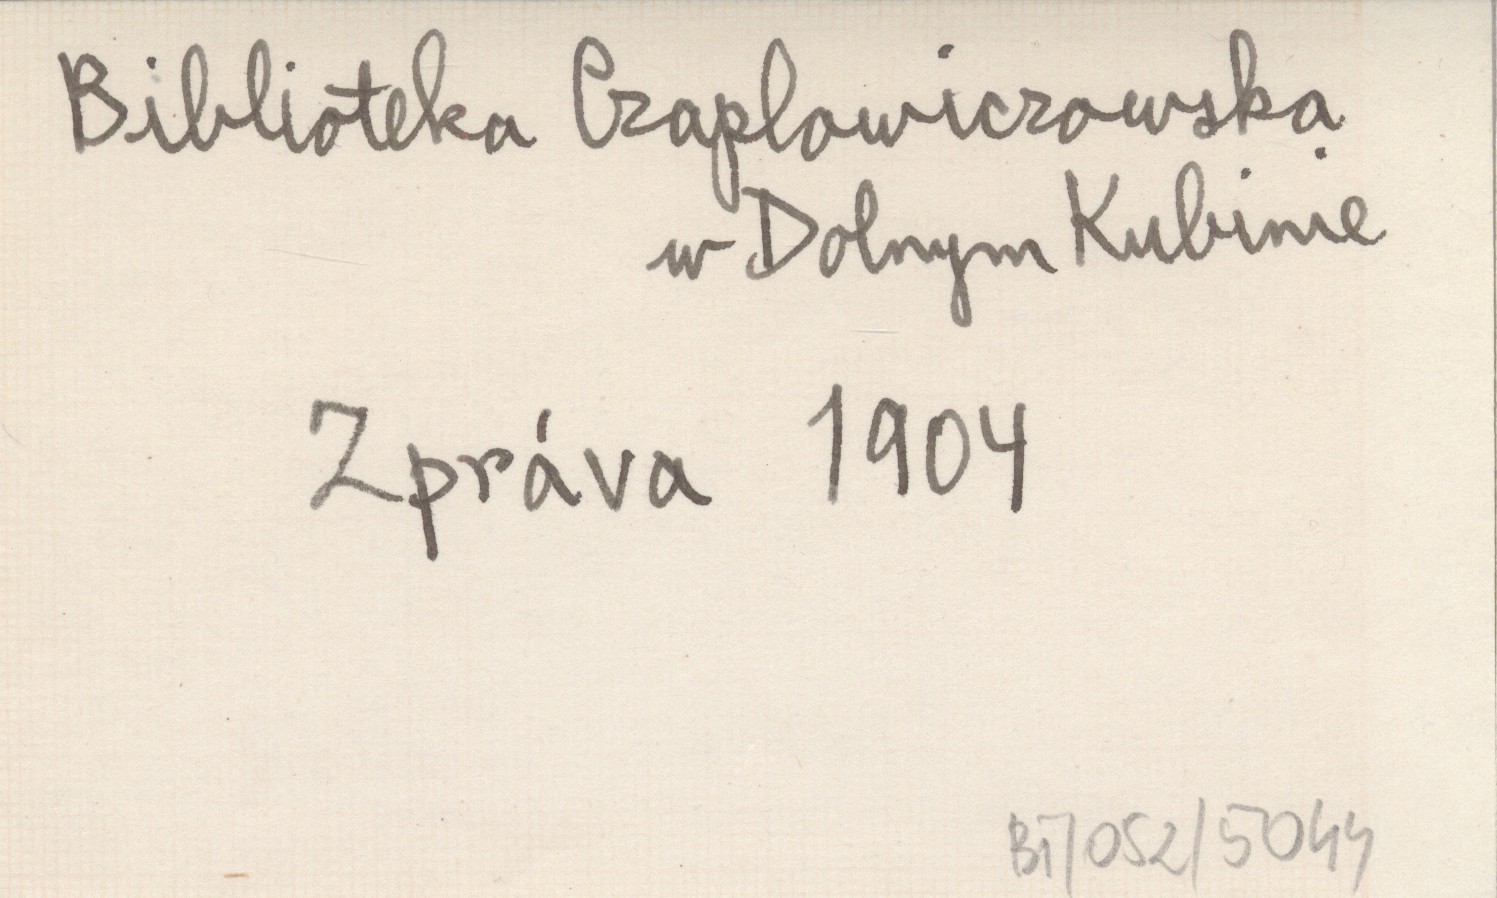 Biblioteka Czaplowiczowska
w Dolnym Kubinie
Zpráva 1904
BT/052/5044